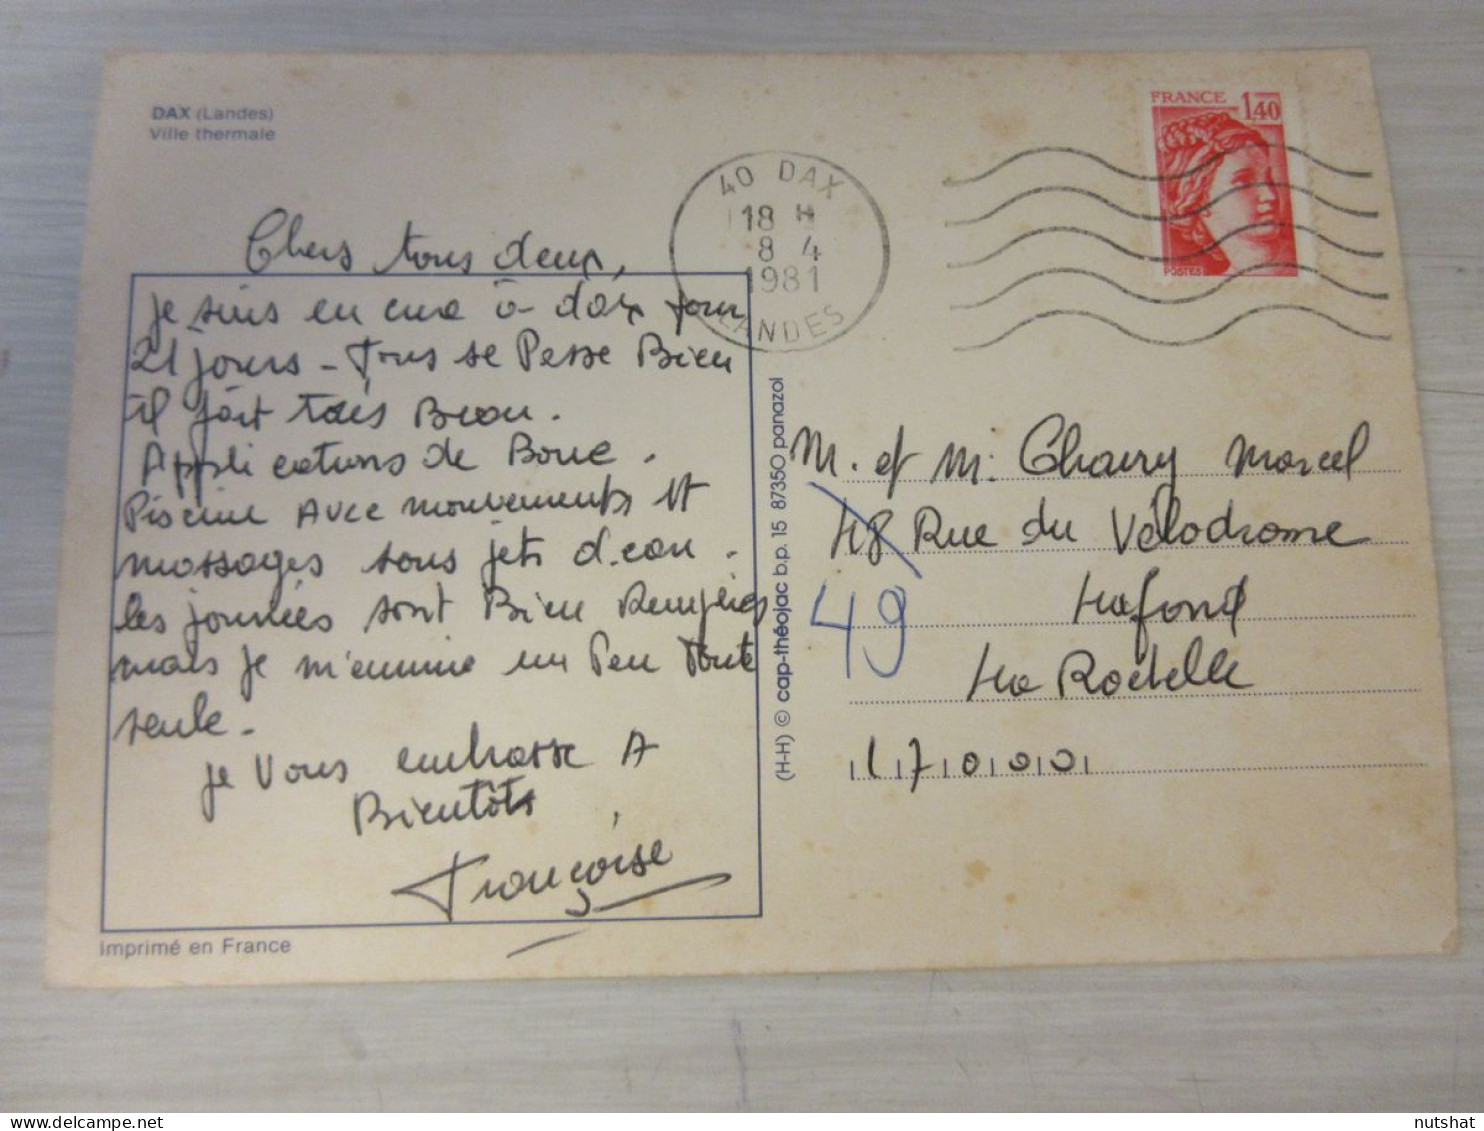 DAX (Landes)
Ville thermale
FRANCE 1,40
POSTES
40 DAX
18 H
8 4
1981
LANDES
Chers tous deux,
je suis en cure à dax pour
21 jours - Tous se Passe Bien
il fait très Beau.
Applications de Boue.
Piscine Avec mouvements et
massages sous jets d'eau.
les journées sont Bien Remplies
mais je m'ennuie un Peu Toute
seule.
je Vous embrasse A
Bientôts
Françoise
Imprimé en France
(H-H) © cap-théojac b.p. 15 87350 panazol
M. et M. Chauvy Marcel
48 Rue du Vélodrome
49
Lafond
La Rochelle
17000
nutshat